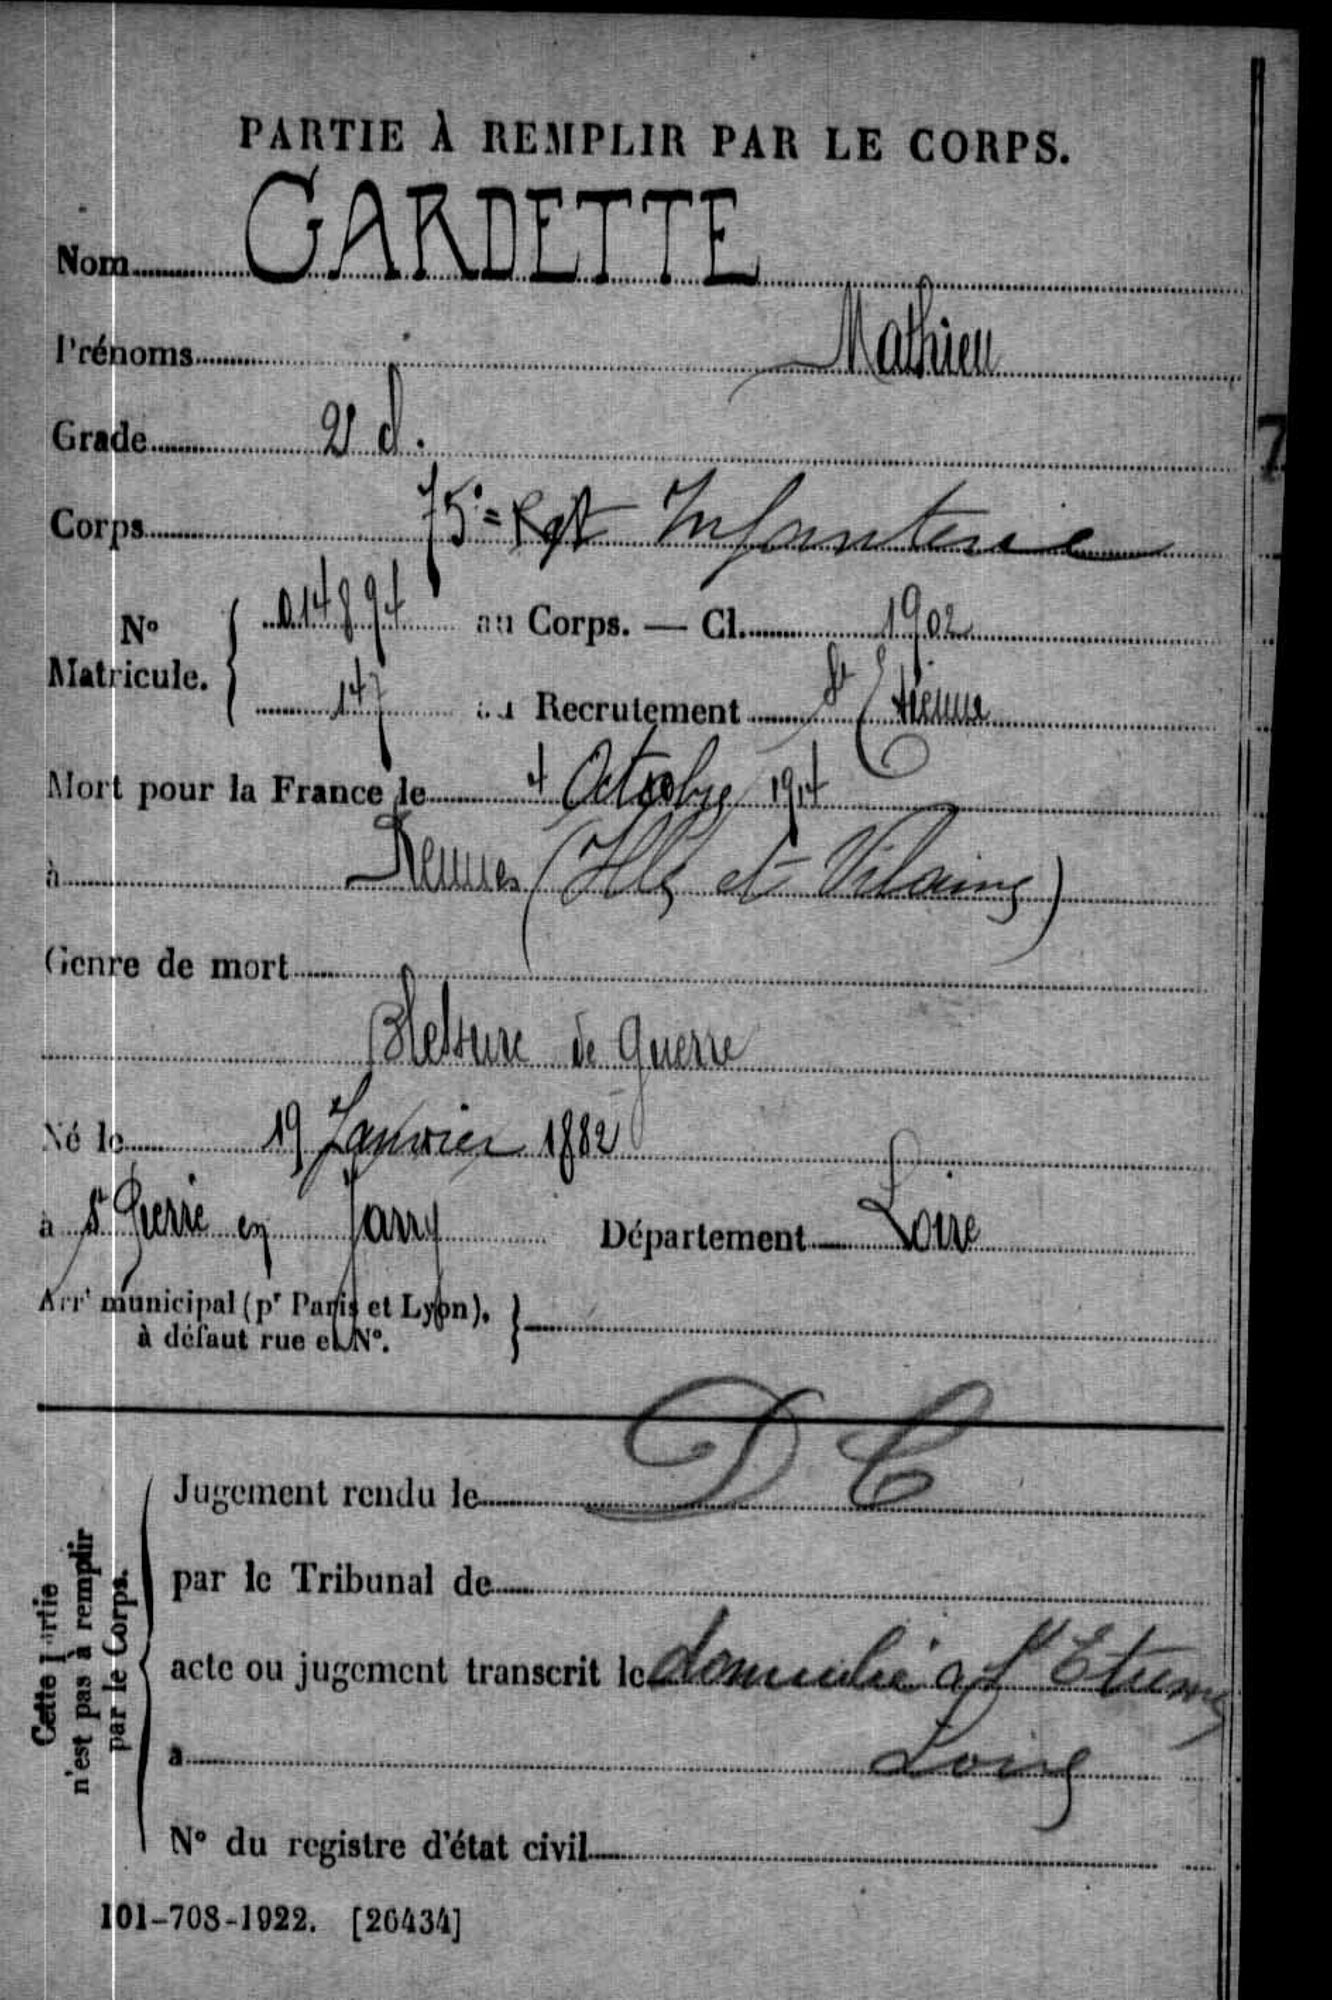 PARTIE À REMPLIR PAR LE CORPS.
Nom GARDETTE
Prénoms Mathieu
Grade 2e cl.
Corps 75e Rgt Infanterie
N° Matricule. 014894 au Corps. — Cl. 1902
147 au Recrutement St Etienne
Mort pour la France le 4 Octobre 1914
à Rennes (Ille et Vilaine)
Genre de mort
Blessure de guerre
Né le 19 Janvier 1882
à St Pierre en Jarry Département Loire
Arrt municipal (pr Paris et Lyon),
à défaut rue et N°.
D C
Cette partie
n'est pas à remplir
par le Corps.
Jugement rendu le
par le Tribunal de
acte ou jugement transcrit le domicilié à St Etienne
à Loire
N° du registre d'état civil
101-708-1922. [26434]
7